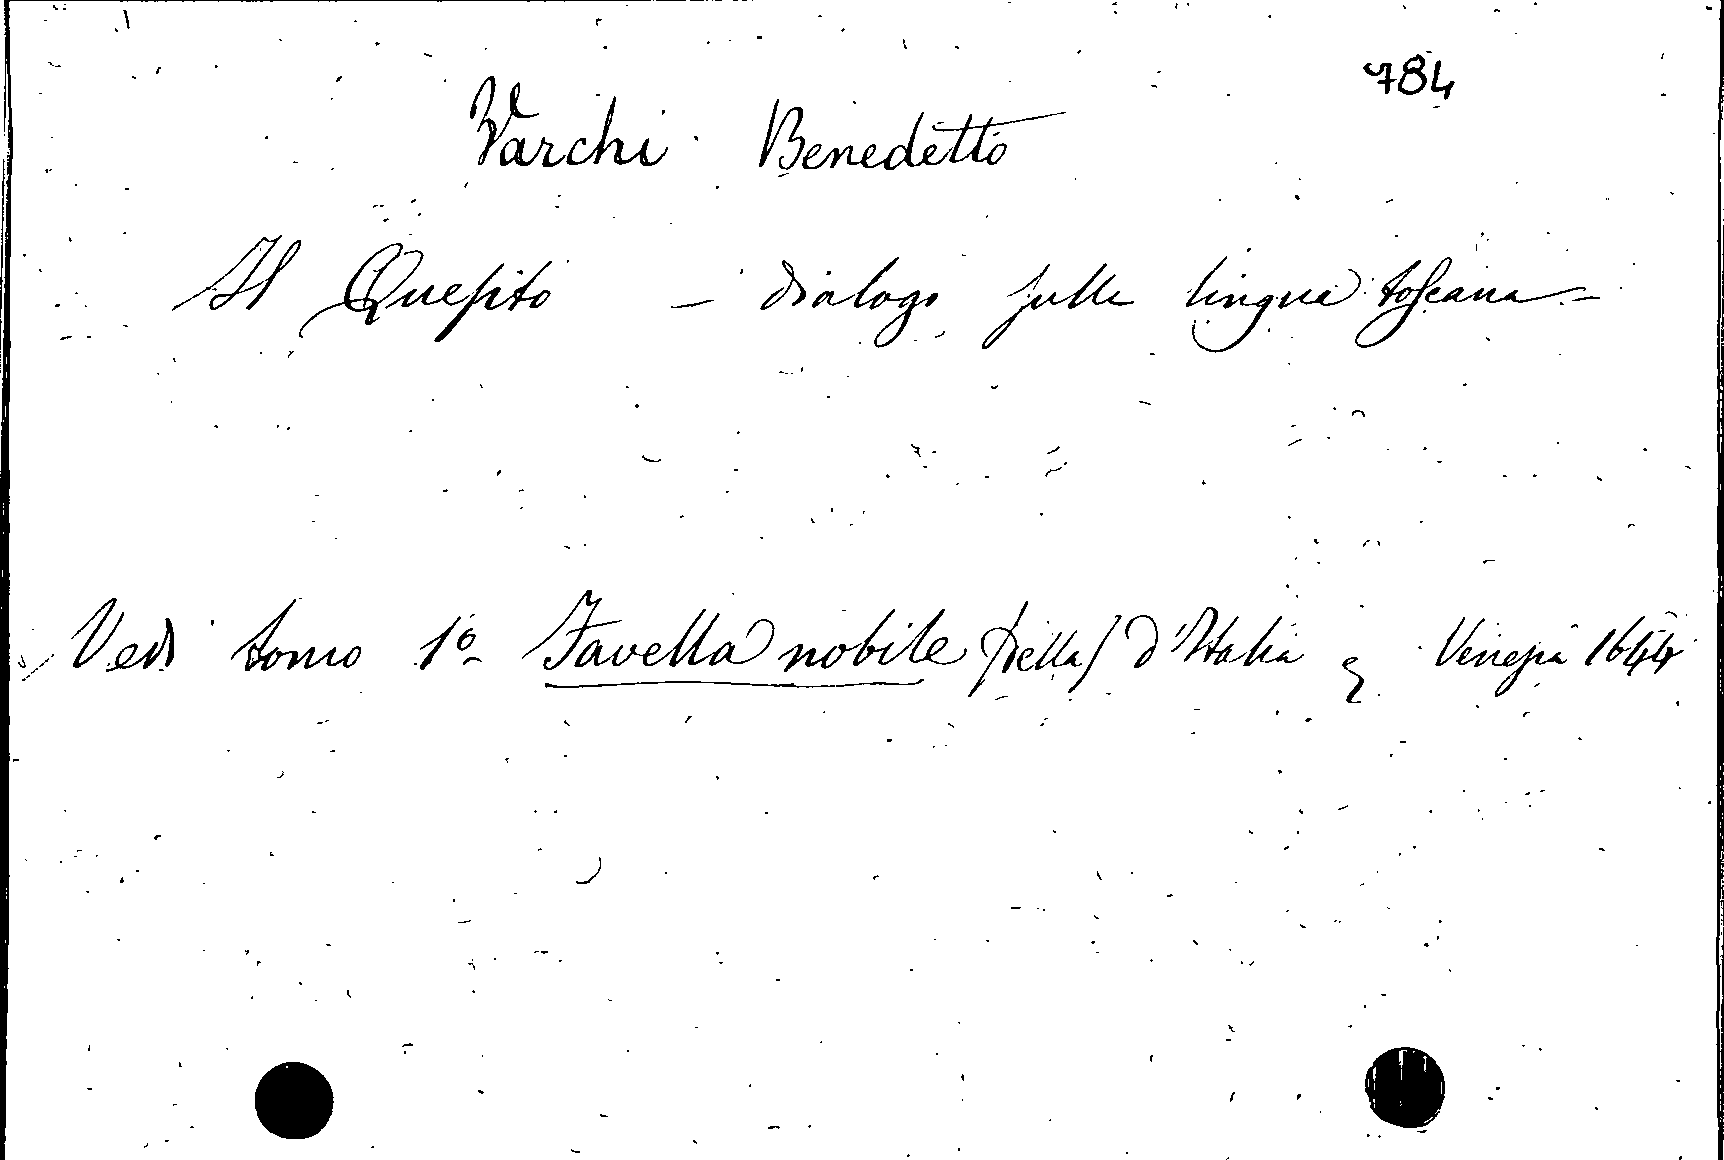 784
Varchi Benedetto
Il Quesito - dialogo sulla lingua toscana -
Vedi tomo 1º Favella nobile (della) d'Italia Venezia 1644